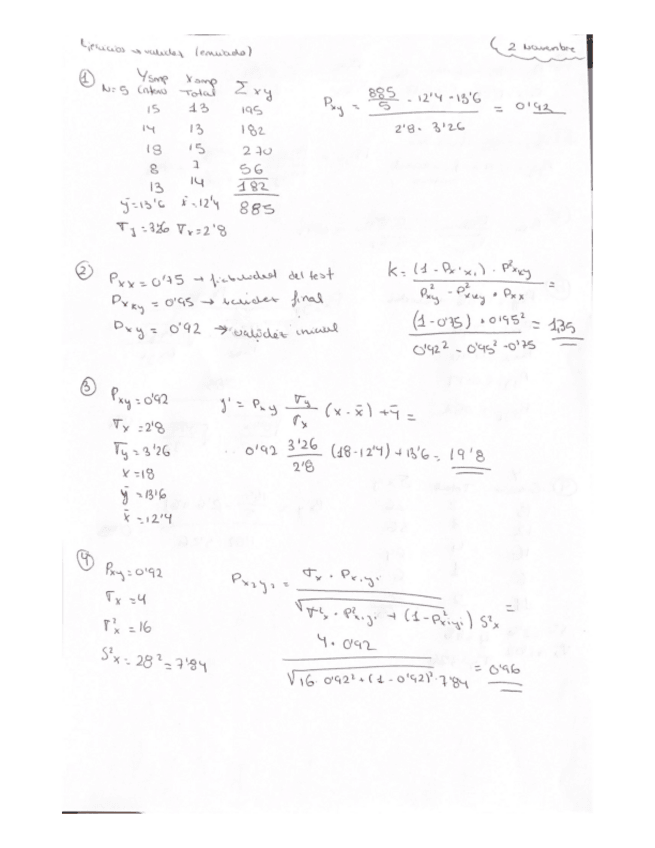 Ejercicios → validez (enviado)
2 Noviembre
① N=5 Y smp X smp Σ xy
Total
15 13 195
14 13 182
18 15 270
8 7 56
13 14 182
ȳ=13'6 x̄=12'4 885
σy=3'26 σx=2'8
Pxy = (885/5 - 12'4 · 13'6) / (2'8 · 3'26) = 0'92
② Pxx = 0'75 → fiabilidad del test
Pxxy = 0'95 → validez final
Pxy = 0'92 → validez inicial
k = ((1 - Px'x₁) · P²xxy) / (P²xy - P²xxy · Pxx) =
((1-0'75) · 0'95²) / (0'92² - 0'95² · 0'75) = 1,35
③ Pxy = 0'92
σx = 2'8
σy = 3'26
x = 18
ȳ = 13'6
x̄ = 12'4
y' = Pxy σy/σx (x - x̄) + ȳ =
0'92 3'26/2'8 (18-12'4) + 13'6 = 19'8
④ Pxy = 0'92
σx = 4
σ²x = 16
S²x = 2'8² = 7'84
Px₂y₂ = (σx · Px₁y₁) / √(σ²x · P²x₁y₁ + (1 - P²x₁y₁) S²x) =
(4 · 0'92) / √(16 · 0'92² + (1 - 0'92)² · 7'84) = 0'96